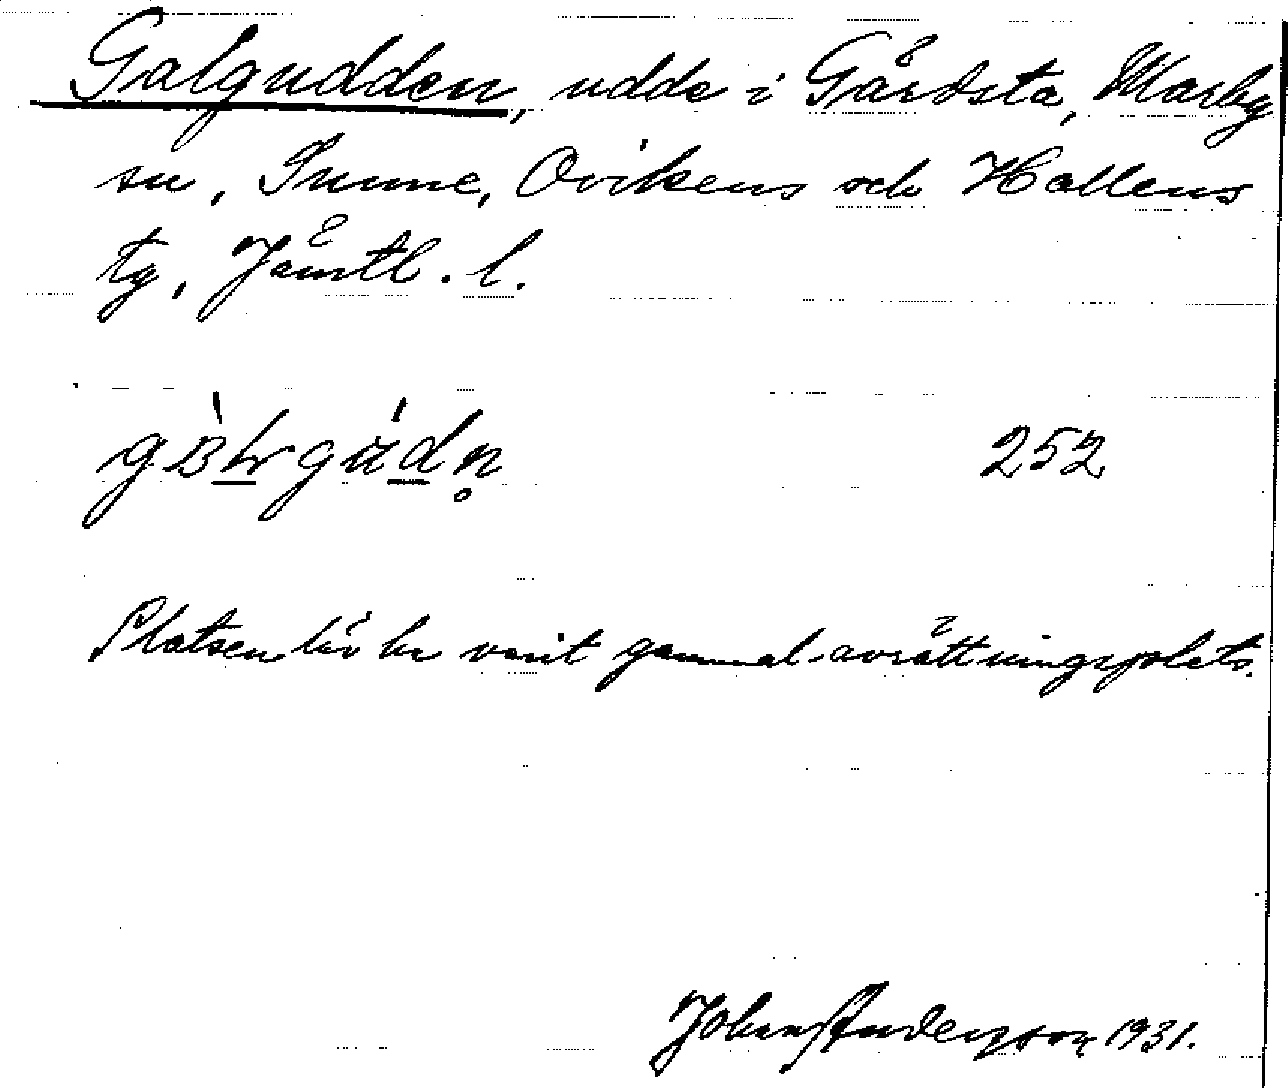 Galgudden, udde i Gärdsta, Marby
sn, Sunne, Ovikens och Hallens
tg, Jämtl. l.
252
Platsen lär ha varit gammal avrättningsplats.
Johan Andersson 1931.